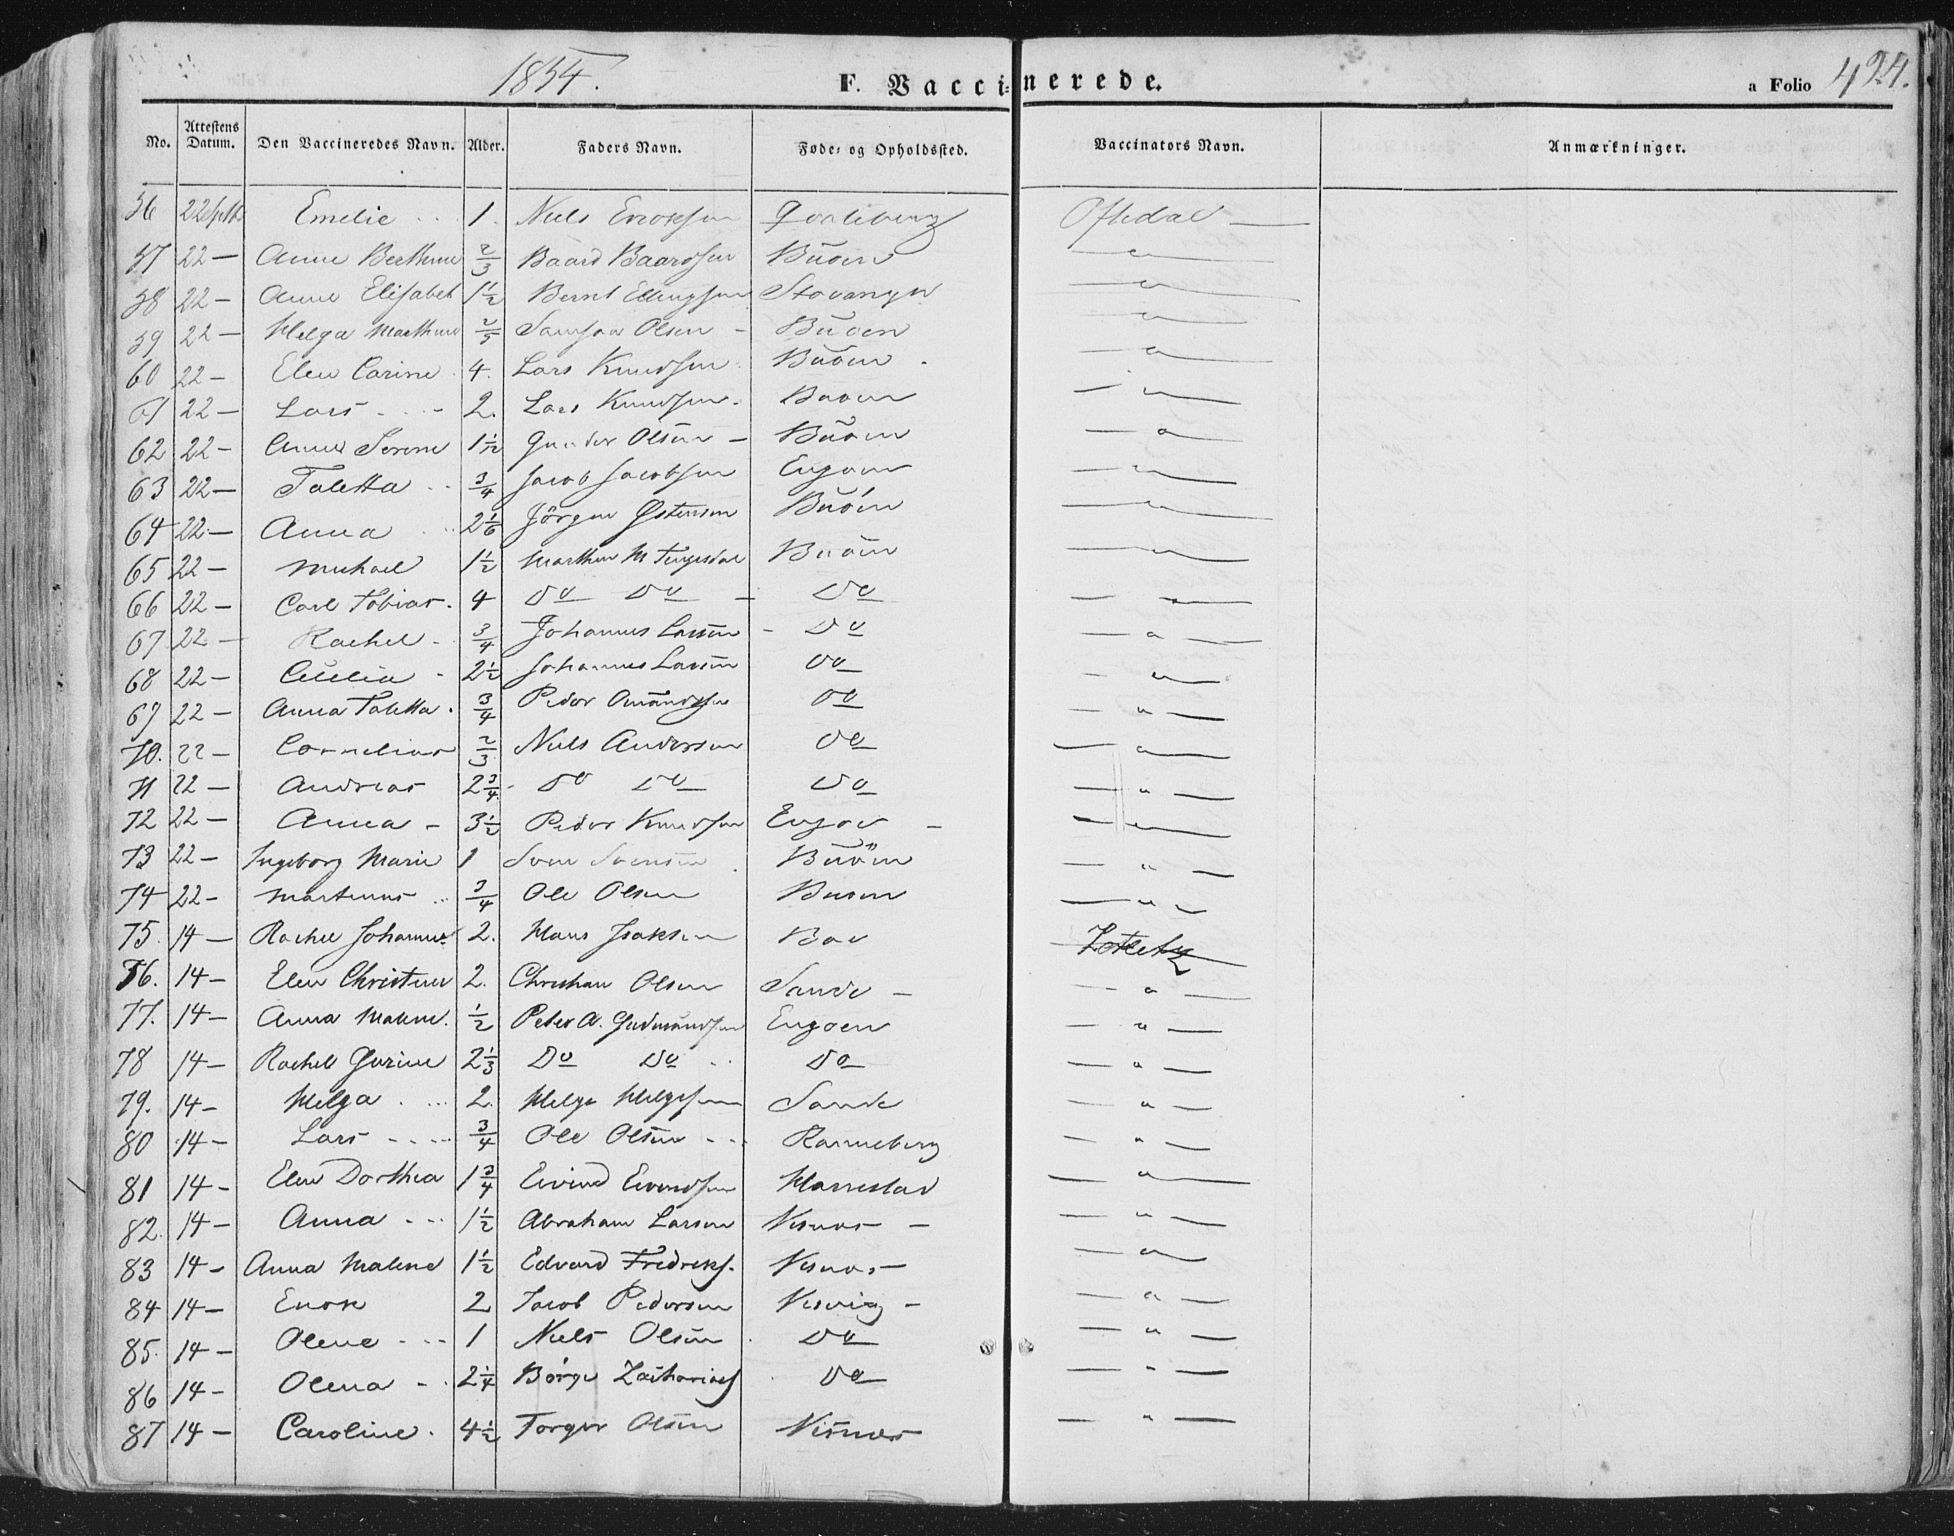 1854.
F. Vaccinerede.
a Folio 424.
No. Attestens Datum. Den Vaccineredes Navn. Alder. Faders Navn. Føde- og Opholdssted. Vaccinators Navn. Anmærkninger.
56 22 Septbr Emelie 1. Niels Oftedal —
57 22 — Anne Berthine 2/3 Baard Baardsen Buøen — " —
58 22 — Anne Elisabet 1 1/2 Bernt Ellingsen Stavanger — " —
59 22 — Helga Marthine 2/5 Samson Olsen — Buøen — " —
60 22 — Elen Carine 4. Lars Knudsen Buøen — " —
61 22 — Lars 2. Lars Knudsen Buøen — " —
62 22 — Anne Serene 1 1/2 Gunder Olsen — Buøen — " —
63 22 — Taletta 3/4 Jacob Jacobsen Engøen — " —
64 22 — Anna 2 1/6 Jörgen Østensen Buøen — " —
65 22 — Michael 1 1/2 Marthin M Buøen — " —
66 22 — Carl Tobias. 4 Do Do — Do — " —
67 22 — Rachel 3/4 Johannes Larsen — Do — " —
68 22 — Cecilia 2 1/2 Johannes Larsen Do — " —
69 22 — Anna Taletta. 3/4 Peder Amundsen Do — " —
70. 22 — Cornelius 2/3 Niels Andersen Do — " —
71 22 — Andreas 2 3/4 Do Do Do — " —
72 22 — Anna — 3 1/2 Peder Knudsen Engøe — — " —
73 22 — Ingeborg Marie 1 Sven Svensen Buøen — " —
74 22 — Martinus 3/4 Ole Olsen Buøen — " —
75. 14 — Rachel Johanne 2. Hans Isaksen Bøe
76. 14 — Elen Christine 2. Christian Olsen Sande — — " —
77. 14 — Anna Malene. 1/2 Peter A. Gudmundsen Engøen — " —
78 14 — Rachel Gurine 2 1/3 Do Do Do — " —
79. 14 — Helga 2. Helge Helgesen Sande — " —
80 14 — Lars 3/4 Ole Olsen Ranneberg — " —
81 14 — Elen Dorthea 1 3/4 Eivind Eivindsen Harrestad — " —
82. 14 — Anna 1 1/2 Abraham Larsen Visnæs — — " —
83 14 — Anna Malene 1 1/2 Edvard Fredreks. Visnæs — — " —
84 14 — Enok 2 Jacob Pedersen Visvig — — " —
85. 14 — Olene 1 Niels Olsen Do — " —
86 14 — Olena 2 1/4 Börge Zachariæs Do — " —
87 14 — Caroline. 4 1/2 Torger Olsen Visnæs — " —